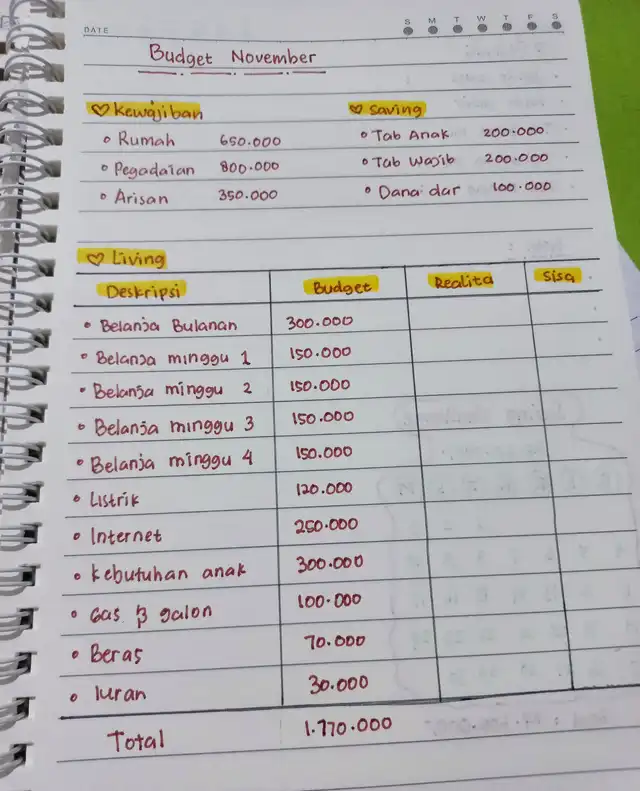 DATE
S M T W T F S
Budget November
Kewajiban
Rumah 650.000
Pegadaian 800.000
Arisan 350.000
Saving
Tab Anak 200.000
Tab Wajib 200.000
Dana dar 100.000
Living
Deskripsi Budget Realita Sisa
Belanja Bulanan 300.000
Belanja minggu 1 150.000
Belanja minggu 2 150.000
Belanja minggu 3 150.000
Belanja minggu 4 150.000
Listrik 120.000
Internet 250.000
Kebutuhan anak 300.000
Gas & galon 100.000
Beras 70.000
Iuran 30.000
Total 1.770.000